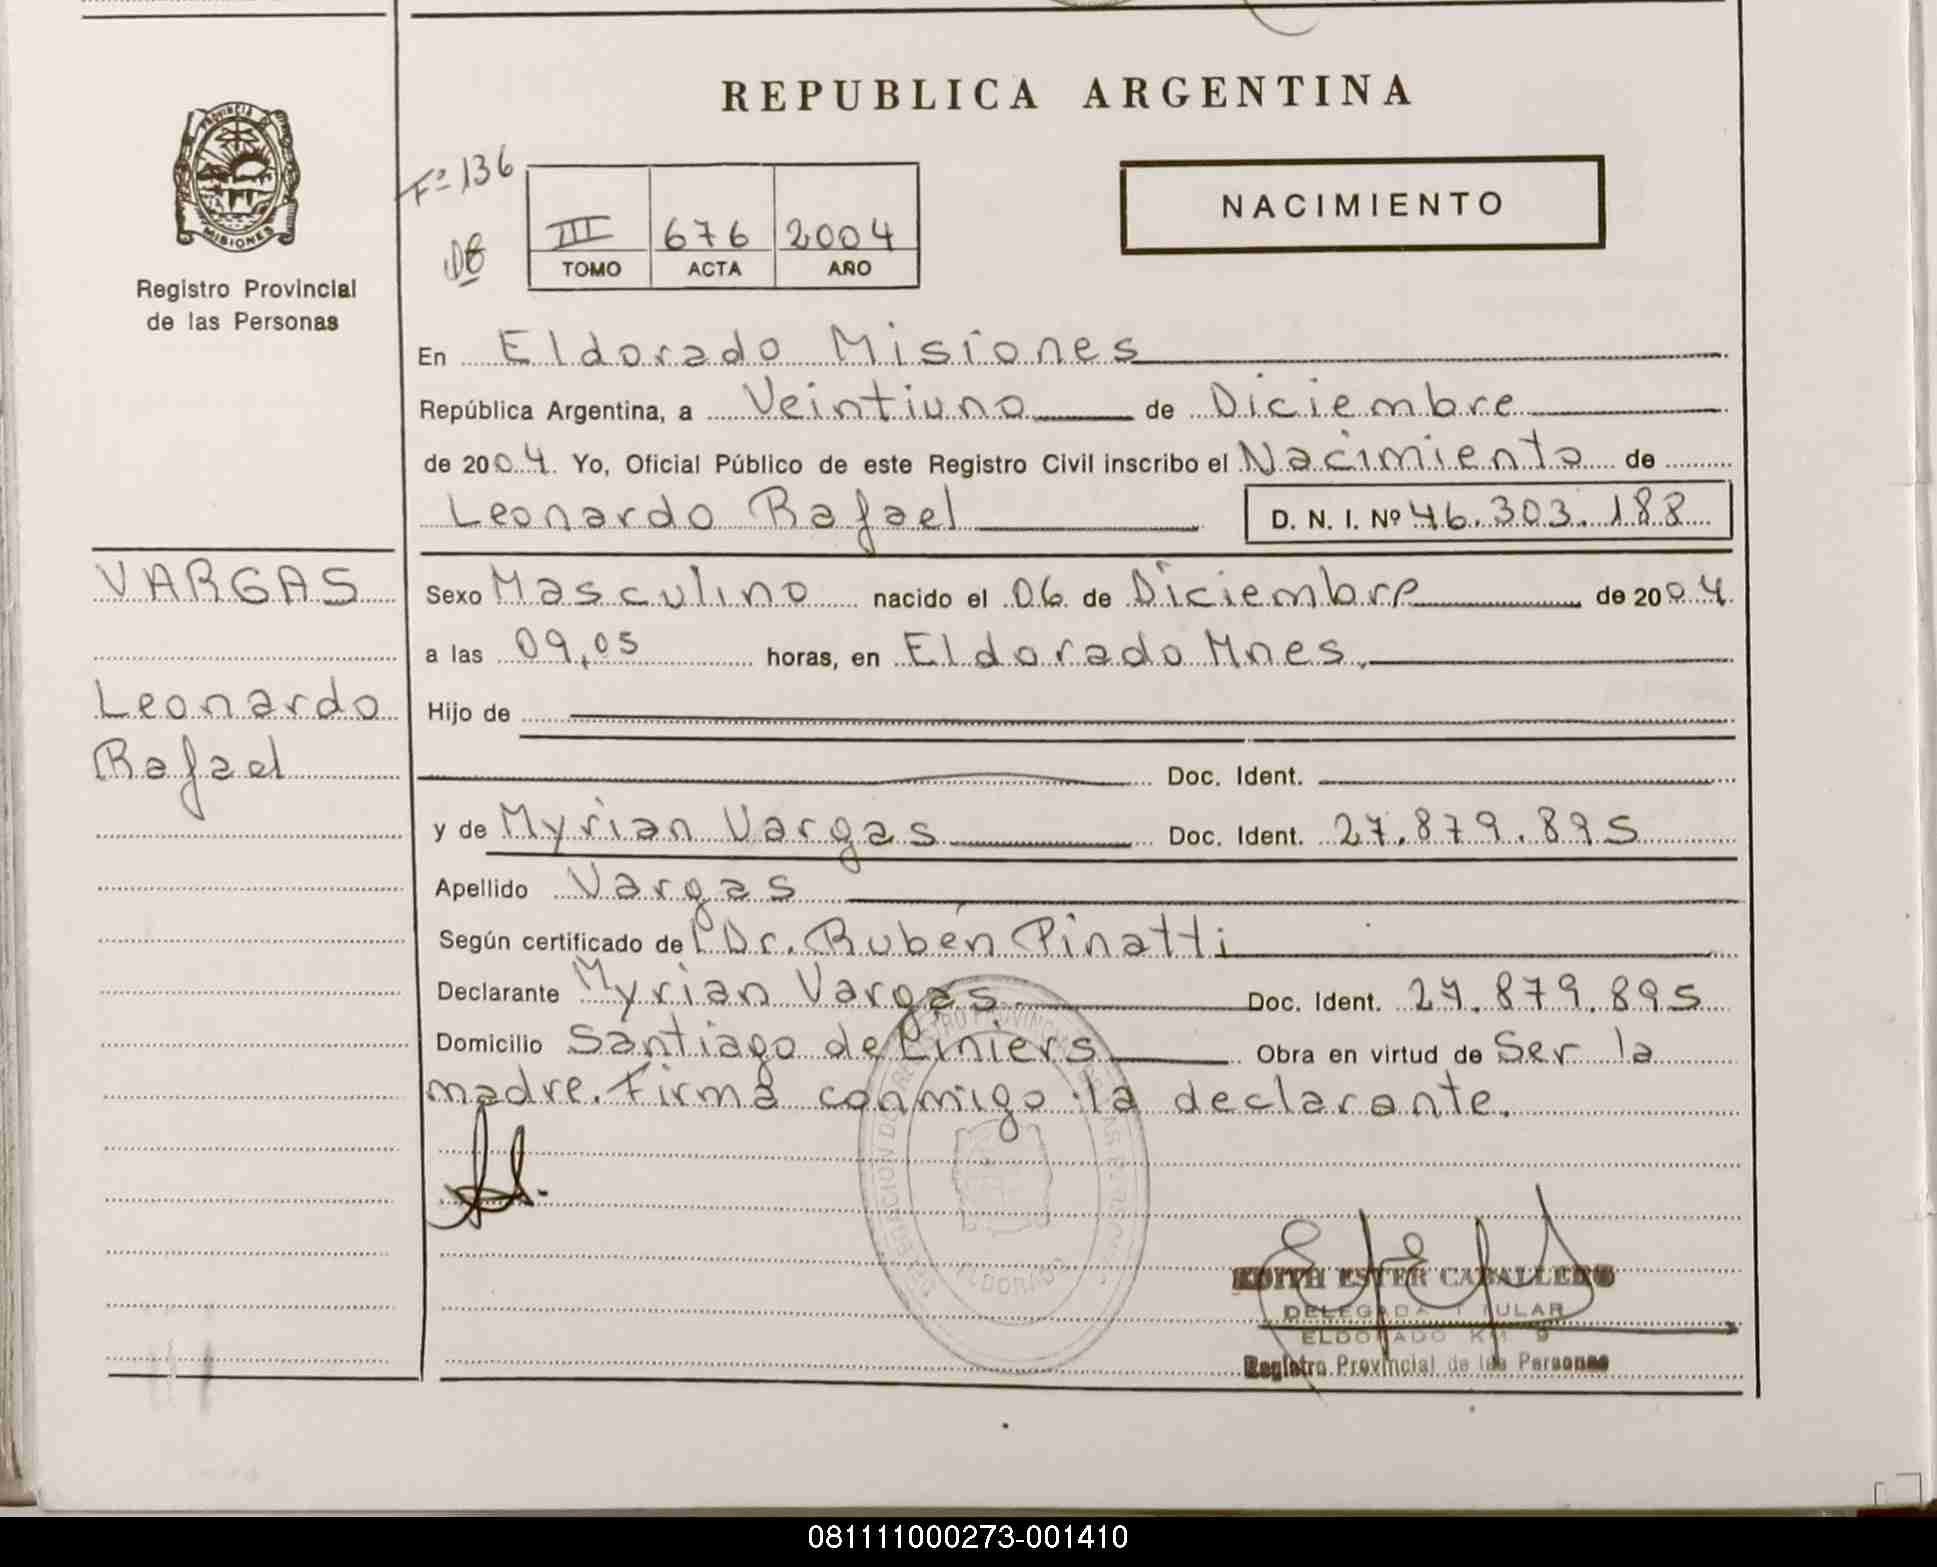 REPUBLICA ARGENTINA
PROVINCIA DE
MISIONES
Registro Provincial
de las Personas
Fº 136
III 676 2004
TOMO ACTA AÑO
NACIMIENTO
En Eldorado Misiones
República Argentina, a Veintiuno de Diciembre
de 2004. Yo, Oficial Público de este Registro Civil inscribo el Nacimiento de
Leonardo Rafael D. N. I. Nº 46.303.188
VARGAS
Leonardo
Rafael
Sexo Masculino nacido el 06 de Diciembre de 2004
a las 09,05 horas, en Eldorado Mnes.
Hijo de
Doc. Ident.
y de Myrian Vargas Doc. Ident. 27.879.895
Apellido Vargas
Según certificado de Dr. Rubén Pinatti
Declarante Myrian Vargas Doc. Ident. 27.879.895
Domicilio Santiago de Liniers Obra en virtud de Ser la
madre. Firma conmigo la declarante.
ELDORADO
EDITH ESTER CABALLERO
DELEGADA TITULAR
ELDORADO KM 9
Registro Provincial de las Personas
081111000273-001410